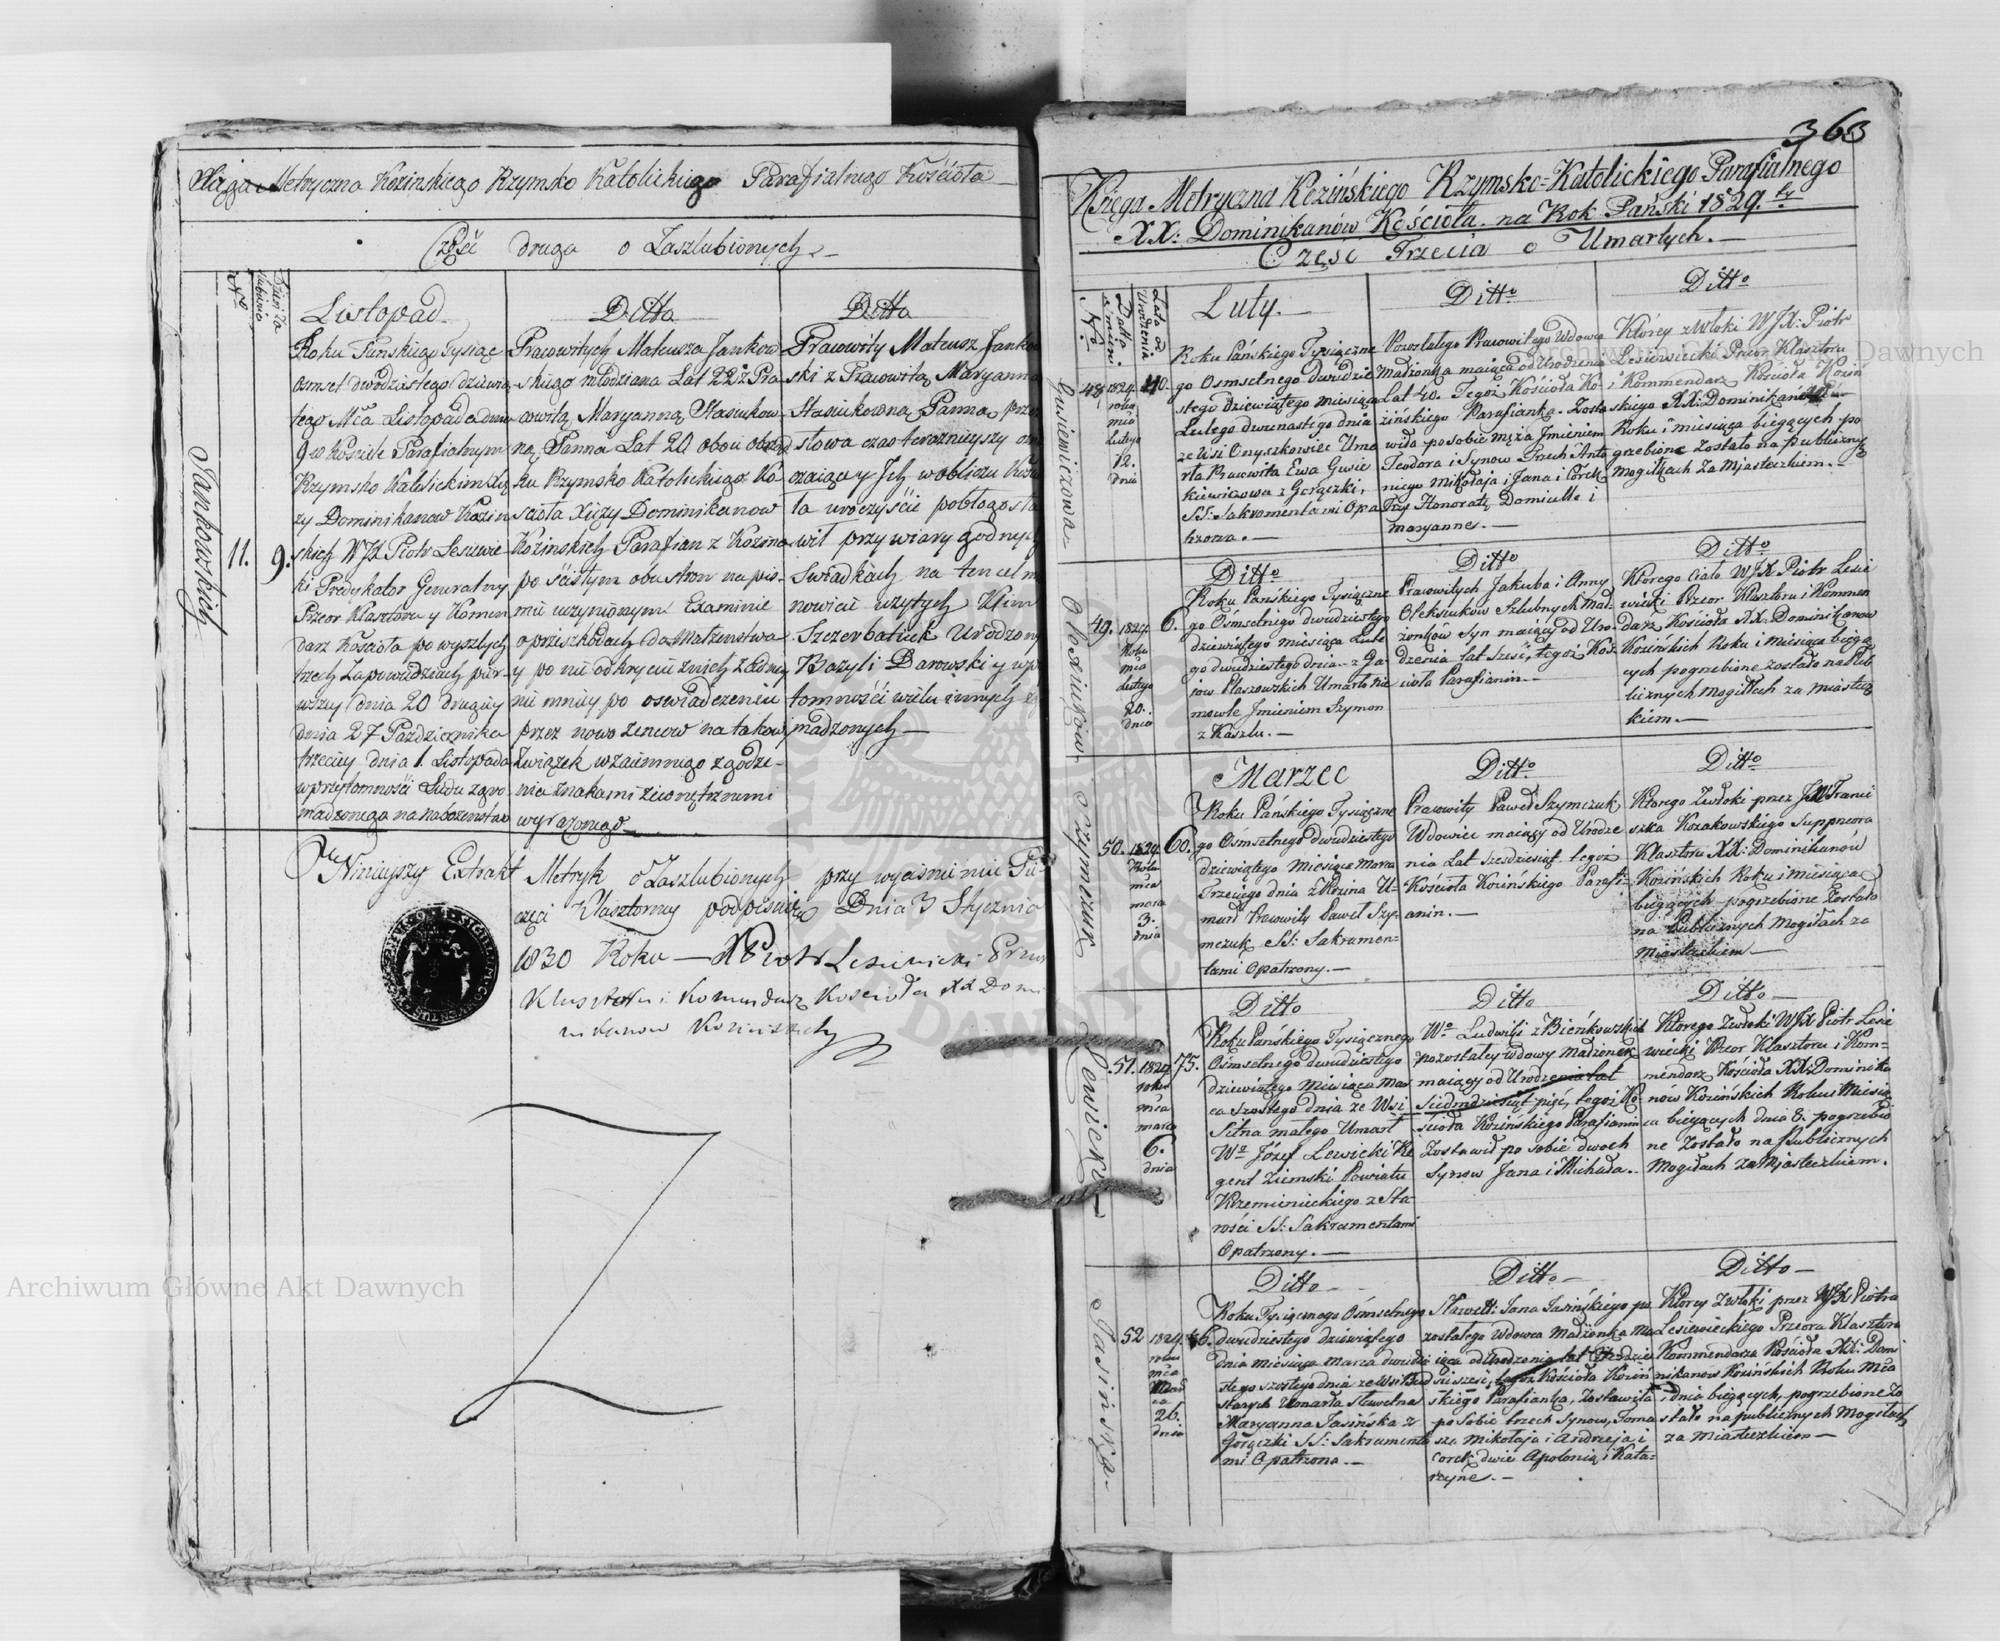 Księga Metryczna Kozinskiego Rzymsko Katolickiego Parafialnego Kościoła
Część druga o Zaślubionych
No
Dzień Za
lubienia
Listopad
Roku Pańskiego Tysiąc
osmset dwódziastego dziewią
tego Mca Listopada dnia
9 w Kościele Parafialnym
Rzymsko Katolickim Xię
ży Dominikanow Kozin
skich WJX Piotr Lesiewic
ki Predykator Generalny
Przeor Klasztoru y Komen
darz Kościoła po wyszłych
trzech Zapowiedziach pier
wszey dnia 20 drugiey
dnia 27 Pazdziernika
trzeciey dnia 1 Listopada
w przytomności Ludu zgro
madzonego na nabożenstwo
Ditto
Pracowitych Mateusza Jankow
skiego młodziana Lat 22 z Pra
cowitą Maryanną Stasiukow
ną Panną Lat 20 oboie obrząd
ku Rzymsko Katolickiego Ko
ścioła Xięży Dominikanow
Kozinskich Parafian z Kozina
po ścisłym obu stron na piś
mie uczynionym Examinie
o przeszkodach do Małżenstwa
y po nie odkryciu znich żadney
nie mniey po oswiadczeniu
przez nowożencow na takowy
Związek wzaiemnego zgodze-
nia znakami zewnętrznemi
wyrażonego
Ditto
Pracowity Mateusz Jankow
ski z Pracowitą Maryanną
Stasiukowną Panną przez
słowa czas terazniejszy ozn
czaiący Jch w obliczu Kościo
ła uroczyście pobłogosła
wił przy wiary godnych
Swiadkach na ten cel
nowicie użytych Klim
Szczerbatiuk Urodzony
Bazyli Darowski y wp
tomności wielu innych z
madzonych
11.
9.
Jankowskich
Niniejszy Extrakt Metryk o Zaślubionych przy wyciśnieniu Pie-
częci Klasztorney podpisuię Dnia 3 Stycznia
1830 Roku — X Piotr Lesiewicki Przeor
Klasztoru i Komendarz Kościoła XX Domi
nikanow Kozinskich
363
Księga Metryczna Kozińskiego Rzymsko-Katolickiego Parafialnego
XX: Dominikanów Kościoła na Rok Pański 1829.ty
Część Trzecia o Umarłych.
No
Datta
śmierci
Lata od
Urodzenia
Luty.
Roku Pańskiego Tysiączne
go Osmsetnego dwudzie
stego dziewiątego miesiąca
Lutego dwunastego dnia
ze Wsi Onyszkowiec Uma
rła Pracowita Ewa Gusie
kiewiczowa z Gorączki,
SS: Sakramentami Opa
trzona.
Ditto
Pozostałego Pracowitego Wdowca
Małżonka maiąca od Urodzenia
Lat 40. Tegoż Kościoła Ko-
zińskiego Parafianka. Zosta
wiła po sobie męża Jmieniem
Teodora i Synow Trzech Anto
niego Mikołaja i Jana i Corek
Trzy Honoratę Domicellę i
Maryannę.
Ditto
Którey zwłoki WJX: Piotr
Lesiewiecki Przeor Klasztoru
i Kommendarz Kościoła Koziń
skiego XX: Dominikanów
Roku i miesiąca bieżących po
grzebione Zostało na publiczny
mogiłkach za Miasteczkiem.
48.
1829.
roku
mca
Lutego
12.
dnia
40.
Gusiewiczowa
Ditto
Roku Pańskiego Tysiączne
go Osmsetnego dwudziestego
dziewiątego miesiąca Lute
go dwudziestego dnia z Ga
jow Płaszowskich Umarło Nie
mowle Jmieniem Szymon
z Kaszlu.
Ditto
Pracowitych Jakuba i Anny
Oleksiukow Szlubnych mał
żonków Syn maiący od Uro
dzenia lat Sześć, tegoż Koś
cioła Parafianin
Ditto
Ktorego Ciało WJX Piotr Lesie
wiecki Przeor Klasztoru i Kommen
darz Kościoła XX. Dominikanow
Kozińskich Roku i miesiąca bieżą
cych pogrzebione zostało na Pub
licznych Mogiłkach za miastecz
kiem.
49.
1829.
Roku
mca
Lutego
20.
dnia
6.
Oleksiukow
Marzec
Roku Pańskiego Tysiączne
go Osmsetnego dwudziestego
dziewiątego Miesiąca Marca
Trzeciego dnia z Kozina U-
marł Pracowity Paweł Szy-
mczuk SS: Sakramen-
tami Opatrzony.
Ditto
Pracowity Paweł Szymczuk
Wdowiec maiący od Urodze
nia Lat Szesdziesiąt tegoż
Kościoła Kozińskiego Parafi-
anin.
Ditto
Ktorego Zwłoki przez JX Franci
szka Kozakowskiego Suppreora
Klasztoru XX: Dominikanów
Kozińskich Roku i miesiąca
bieżących pogrzebione Zostało
na Publicznych Mogiłach za
Miasteczkiem
50.
1829.
Roku
mca
marca
3.
dnia
60.
Szymczuk
Ditto
Roku Pańskiego Tysiącznego
Osmsetnego dwudziestego
dziewiątego Miesiąca Mar
ca Szostego dnia ze Wsi
Sitna małego Umarł
Wo Józef Lewicki Re
gent Ziemski Powiatu
Krzemienieckiego z Sta-
rości SS: Sakramentami
Opatrzony.
Ditto
Wo Ludwiki z Bieńkowskich
pozostałey Wdowy Małżonek
maiący od Urodzenia lat
Siedmdziesiąt pięć, tegoż Ko-
ścioła Kozińskiego Parafianin
Zostawił po sobie dwoch
Synow Jana i Michała.
Ditto
Ktorego Zwłoki WJX Piotr Lesie
wiecki Przeor Klasztoru i Kom-
mendarz Kościoła XX: Dominika
nów Kozińskich Roku i Miesią
ca bieżących dnia 8. pogrzebio
ne Zostało na Publicznych
Mogiłach za Miasteczkiem.
51.
1829
roku
mca
marca
6.
dnia
75.
Lewicki
Ditto
Roku Tysiącznego Osmsetnego
dwudziestego dziewiątego
dnia miesiąca marca dwudzie
stego szostego dnia ze Wsi Bud
starych Umarła Sławetna
Maryanna Jasińska z
Gorączki SS: Sakramenta
mi Opatrzona.
Ditto
Sławett: Jana Jasińskiego po
zostałego Wdowca Małżonka ma
iąca od Urodzenia lat
sześć, tegoż Kościoła Koziń
skiego Parafianka, Zostawiła
po Sobie trzech Synow, Toma
sza Mikołaja i Andrzeja i
corek dwie Apolonią i Kata-
rzynę.
Ditto
Ktorey Zwłoki przez WJX Piotra
Lesiewieckiego Przeora Klasztoru
Kommendarza Kościoła XX. Domi
nikanow Kozińskich Roku Mca
i dnia bieżących, pogrzebione Zo
stało na publicznych Mogiłach
za Miasteczkiem
52
1829.
roku
mca
Mar
ca
26.
dnia
Jasińska
Archiwum Główne Akt Dawnych
Archiwum Główne Akt Dawnych